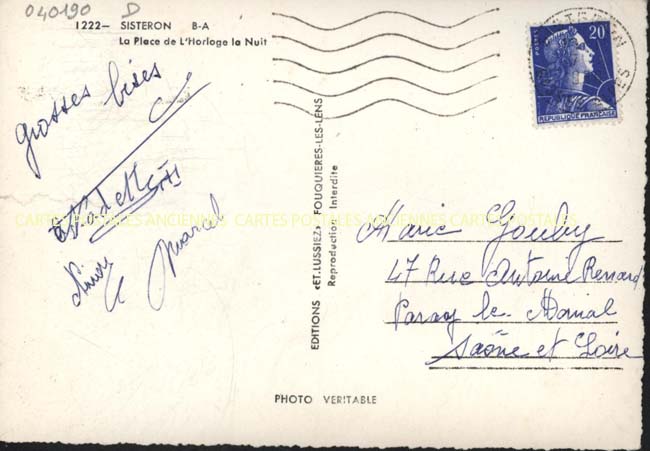 040190 D
1222– SISTERON B-A
La Place de L'Horloge la Nuit
Grosses bises
Marcel
EDITIONS «ET.LUSSIEZ» FOUQUIERES-LES-LENS
Reproduction Interdite
POSTES
20F
REPUBLIQUE FRANÇAISE
CARTES POSTALES ANCIENNES CARTES POSTALES ANCIENNES CARTES POSTALES
Marie Gouby
47 Rue Antoine Renard
Paray le Monial
Saône et Loire
PHOTO VERITABLE